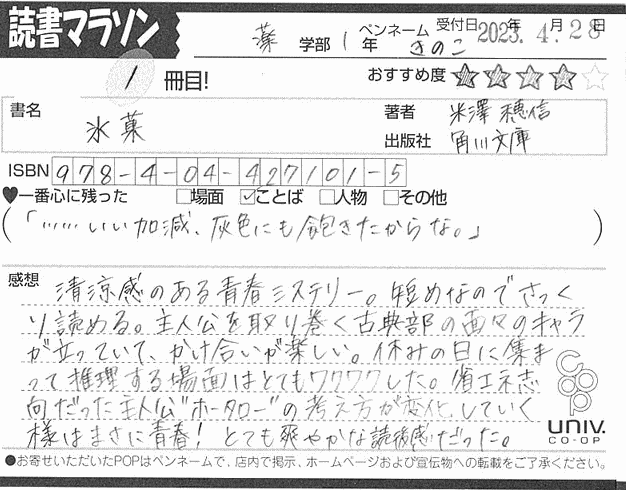 読書マラソン
薬 学部 1 年 ペンネーム きのこ 受付日 2023年 4月 28日
1 冊目! おすすめ度 ★★★★☆
書名 氷菓
著者 米澤 穂信
出版社 角川文庫
ISBN 978-4-04-427101-5
♥一番心に残った □場面 ☑ことば □人物 □その他
(「……いい加減、灰色にも飽きたからな。」)
感想 清涼感のある青春ミステリー。短めなのでさっく
り読める。主人公を取り巻く古典部の面々のキャラ
が立っていて、かけ合いが楽しい。休みの日に集ま
って推理する場面はとてもワクワクした。省エネ志
向だった主人公"ホータロー"の考え方が変化していく
様はまさに青春! とても爽やかな読後感だった。
coop
UNIV.
CO-OP
●お寄せいただいたPOPはペンネームで、店内で掲示、ホームページおよび宣伝物への転載をご了承ください。